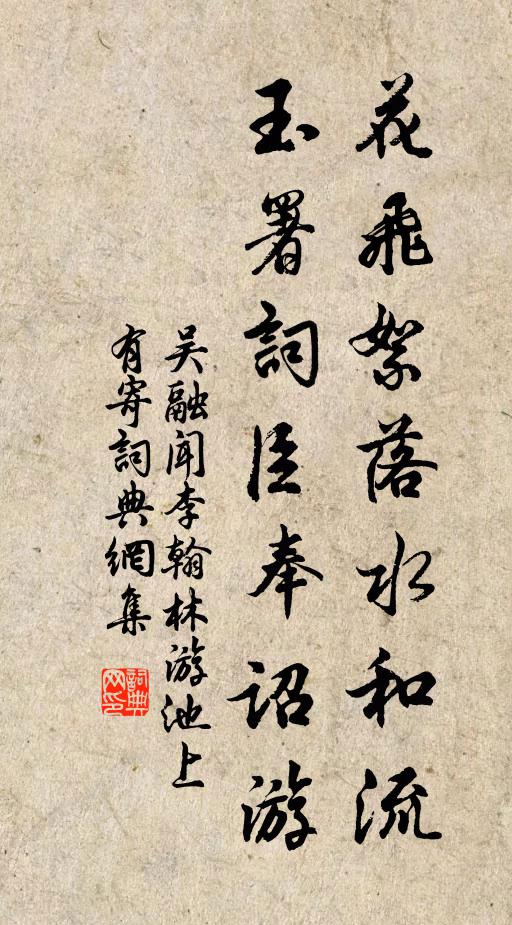 花飛絮落水和流
玉署詞臣奉詔游
吴融闻李翰林游池上
有寄詞典網集
詞典网印